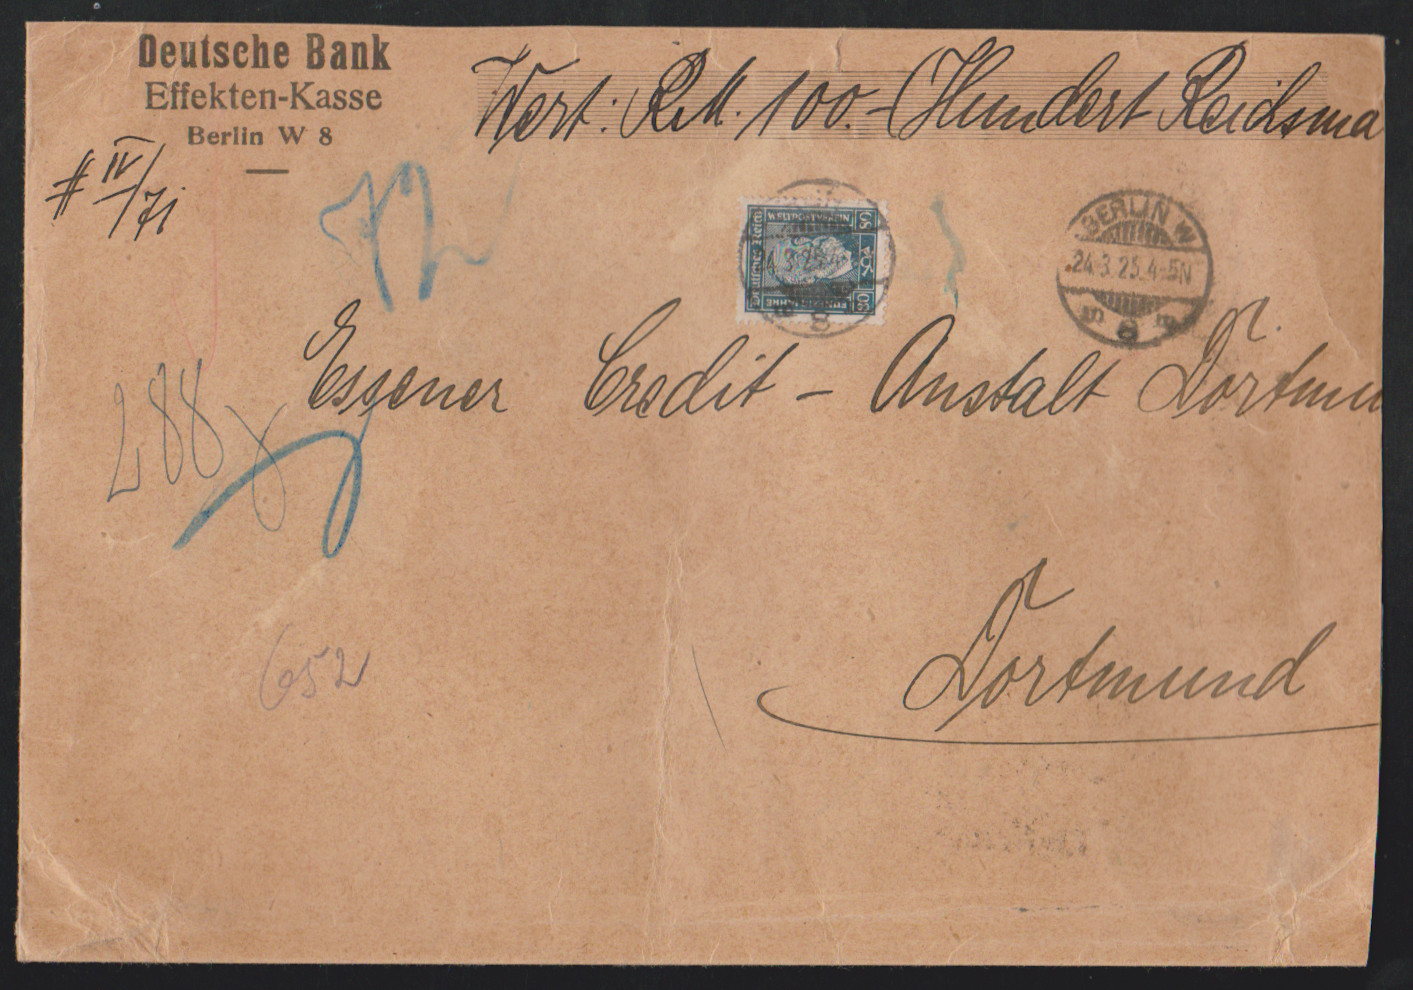 Deutsche Bank
Effekten-Kasse
Berlin W 8
# IV/71
Wert: RM. 100.- (Hundert Reichsma
72
50 50
Deutsches Reich
BERLIN W
24.3.25. 4-5N
8
Essener Credit - Anstalt Dortmun
288
652
Dortmund